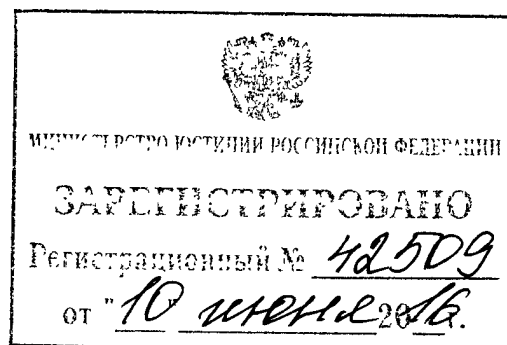 МИНИСТЕРСТВО ЮСТИЦИИ РОССИЙСКОЙ ФЕДЕРАЦИИ
ЗАРЕГИСТРИРОВАНО
Регистрационный № 42509
от "10" июня 2016.